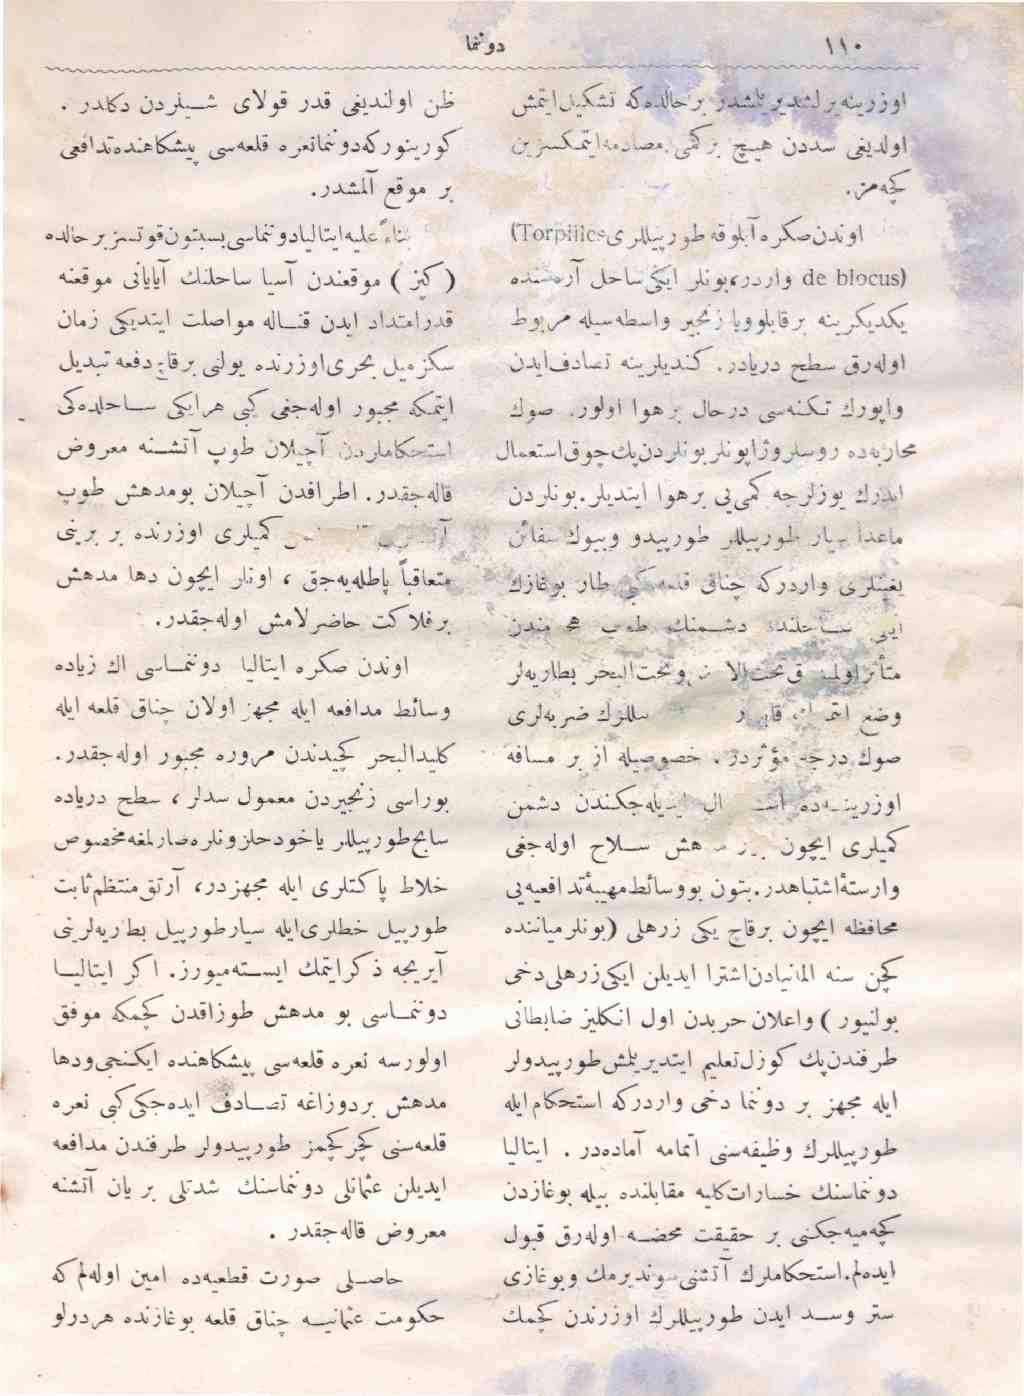 ١١٠
دوننما
اوزرينه يرلشديريلمشدر بر حالده كه تشكيل ايتمش
اولديغى سددن هيچ بر كمى مصادمه ايتمكسزين
كچه مز.
اوندن صكره آبلوقه طورپيللرى (Torpilles
de blocus) واردر، بونلر ايكى ساحل آره سنده
يكديكرينه بر قابلو ويا زنجير واسطه سيله مربوط
اوله رق سطح دريادر. كنديلرينه تصادف ايدن
واپورك تكنه سى درحال بر هوا اولور. صوك
محاربه ده روسلر وژاپونلر بونلردن پك چوق استعمال
ايدرك يوزلرجه كمى يى بر هوا ايتديلر. بونلردن
ماعدا سيار طورپيللر طورپيدو وبيوك سفائن
يغينلرى واردركه چناق قلعه كبى طار بوغازك
ايكى ساحلنده دشمنك طوپ هجومندن
متأثر اولميه جق تحت الارض وتحت البحر بطاريه لر
وضع ايتمك قابلدر
سللرك ضربه لرى
صوك درجه مؤثردر. خصوصيله از بر مسافه
اوزرينده استعمال ايديله جكندن دشمن
كميلرى ايچون مدهش سلاح اوله جغى
وارسته اشتباهدر. بتون بو وسائط مهيبه تدافعيه يى
محافظه ايچون برقاچ يكى زرهلى (بونلر مياننده
كچن سنه المانيادن اشترا ايديلن ايكى زرهلى دخى
بولنيور) واعلان حربدن اول انكليز ضابطانى
طرفندن پك كوزل تعليم ايتديريلمش طورپيدولر
ايله مجهز بر دوننما دخى واردركه استحكام ايله
طورپيللرك وظيفه سنى اتمامه آماده در. ايتاليا
دوننماسنك خسارات كليه مقابلنده بيله بوغازدن
كچه ميه جكنى بر حقيقت محضه اوله رق قبول
ايده لم. استحكاملرك آتشنى سوندیرمك وبوغازى
ستر وسد ايدن طورپيللرك اوزرندن كچمك
ظن اولنديغى قدر قولاى شيلردن دكلدر.
كورينوركه دوننما نعره قلعه سى پيشكاهنده تدافعى
بر موقع آلمشدر.
بناءً عليه ايتاليا دوننماسى بسبتون قوتسز بر حالده
(كپز) موقعندن آسيا ساحلنك آياپانى موقعنه
قدر امتداد ايدن قناله مواصلت ايتديكى زمان
سكز ميل بحرى اوزرنده يولنى برقاچ دفعه تبديل
ايتمكه مجبور اوله جغى كبى هر ايكى ساحلده كى
استحكاملردن آچيلان طوپ آتشنه معروض
قاله جقدر. اطرافدن آچيلان بو مدهش طوپ
كميلرى اوزرنده بر برينى
متعاقباً پاطله يه جق، اونلر ايچون دها مدهش
بر فلاكت حاضرلامش اوله جقدر.
اوندن صكره ايتاليا دوننماسى اك زياده
وسائط مدافعه ايله مجهز اولان چناق قلعه ايله
كليد البحر كچيدندن مروره مجبور اوله جقدر.
بوراسى زنجيردن معمول سدلر، سطح درياده
سابح طورپيللر ياخود حلزونلره صارلمغه مخصوص
خلاط پاكتلرى ايله مجهزدر، آرتق منتظم ثابت
طورپيل خطلرى ايله سيار طورپيل بطاريه لرينى
آيريجه ذكر ايتمك ايسته ميورز. اكر ايتاليا
دوننماسى بو مدهش طوزاقدن كچمكه موفق
اولورسه نعره قلعه سى پيشكاهنده ايكنجى ودها
مدهش بر دوزاغه تصادف ايده جكى كبى نعره
قلعه سنى كچر كچمز طورپيدولر طرفندن مدافعه
ايديلن عثمانلى دوننماسنك شدتلى بر يان آتشنه
معروض قاله جقدر.
حاصلى صورت قطعيه ده امين اوله لم كه
حكومت عثمانيه چناق قلعه بوغازنده هر درلو